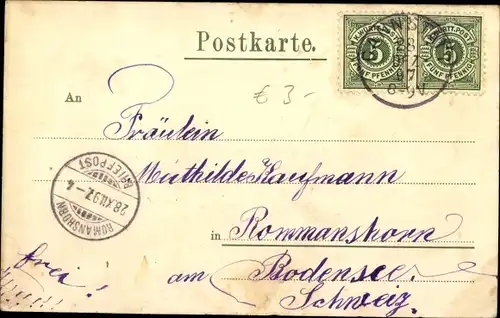 K. WÜRTT. POST
5
FÜNF PFENNIG
K. WÜRTT. POST
5
FÜNF PFENNIG
28
DEZ
97
Postkarte.
€ 3-
An
Fräulein
Mathilde Kaufmann
in Rommanshorn
am Bodensee.
Schweiz.
frei!
ROMANSHORN
28.XII.97.-4
BRIEFPOST